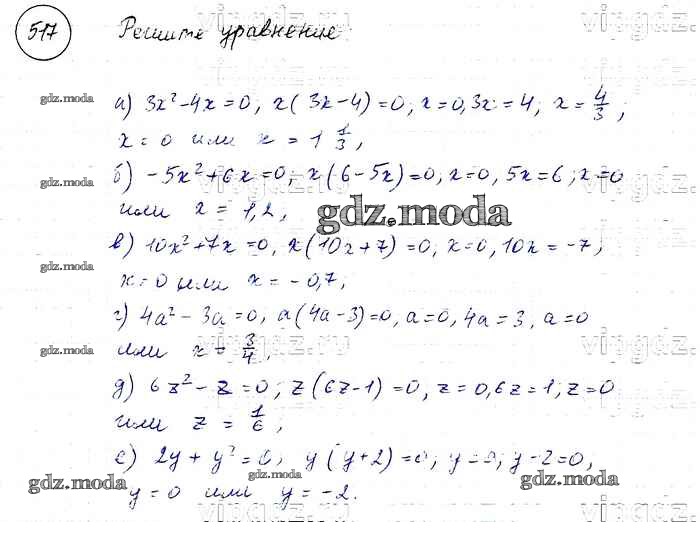 517 Решите уравнение:
а) 3x² - 4x = 0, x(3x - 4) = 0, x = 0, 3x = 4; x = 4/3;
x = 0 или x = 1 1/3;
б) -5x² + 6x = 0; x(6 - 5x) = 0, x = 0, 5x = 6; x = 0
или x = 1,2;
в) 10x² + 7x = 0, x(10x + 7) = 0, x = 0, 10x = -7;
x = 0 или x = -0,7;
г) 4a² - 3a = 0, a(4a - 3) = 0, a = 0, 4a = 3, a = 0
или x = 3/4;
д) 6z² - z = 0; z(6z - 1) = 0, z = 0, 6z = 1; z = 0
или z = 1/6;
е) 2y + y² = 0, y(y + 2) = 0; y = 0; y - 2 = 0,
y = 0 или y = -2.
gdz.moda
gdz.moda
gdz.moda
gdz.moda
gdz.moda
gdz.moda
gdz.moda